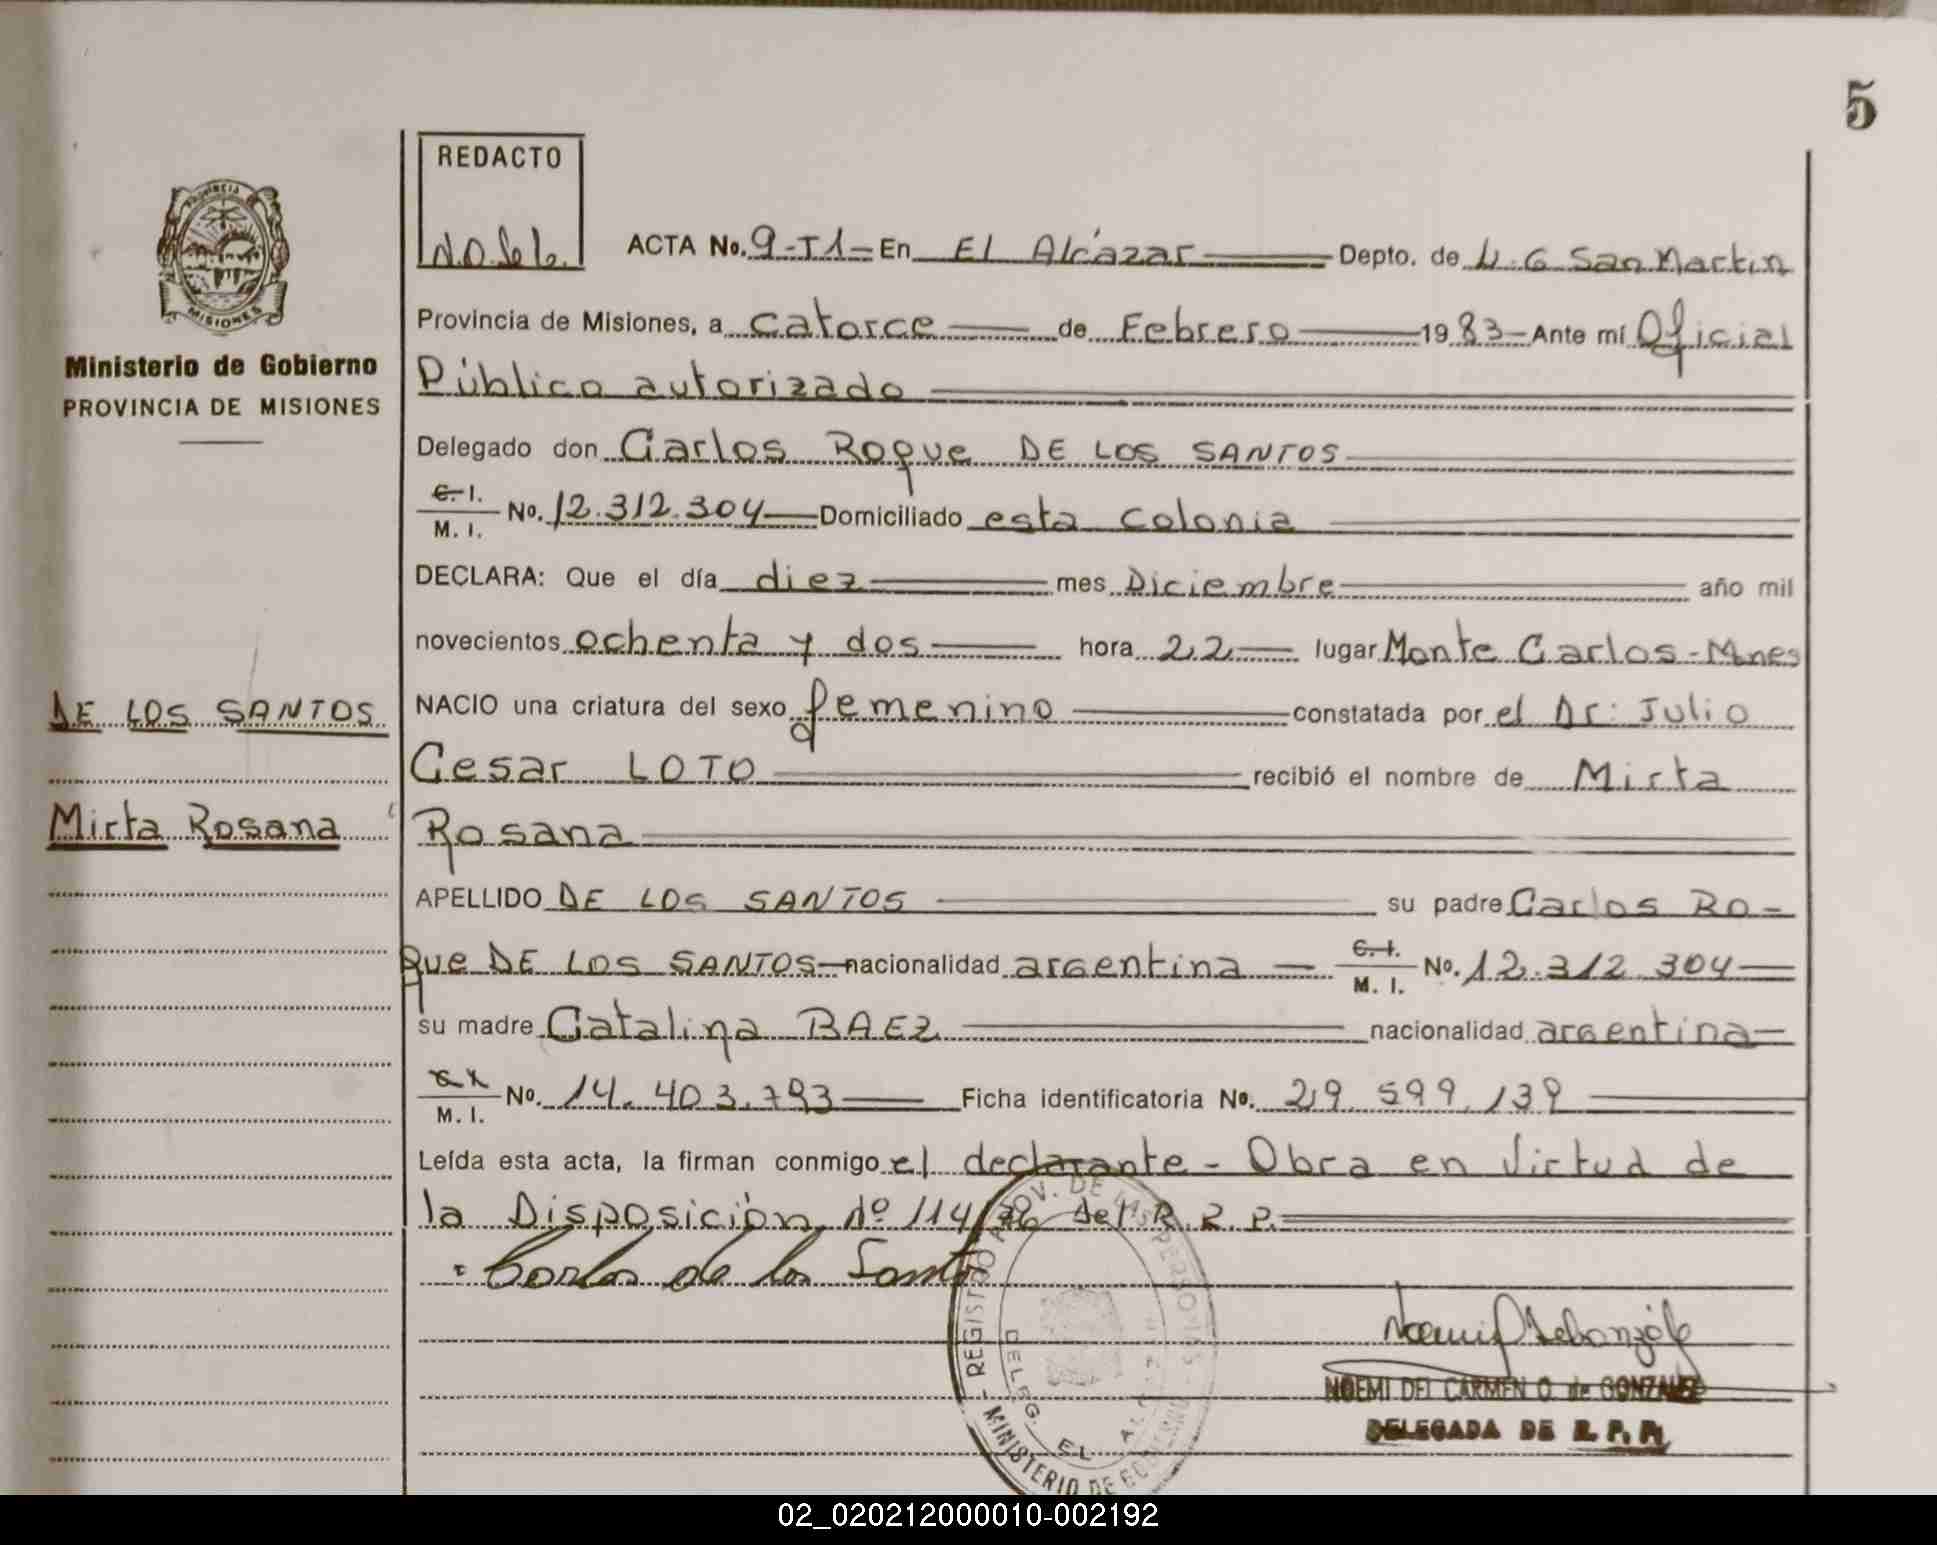 5
REDACTO
PROVINCIA
MISIONES
Ministerio de Gobierno
PROVINCIA DE MISIONES
ACTA No. 9-T1- En El Alcázar Depto. de L. G San Martin
Provincia de Misiones, a catorce de Febrero 1983- Ante mí Oficial
Público autorizado
Delegado don Carlos Roque DE LOS SANTOS
C. I.
M. I. No. 12.312.304 Domiciliado esta colonia
DECLARA: Que el día diez mes Diciembre año mil
novecientos ochenta y dos hora 22 lugar Monte Carlos-Mnes
DE LOS SANTOS
NACIO una criatura del sexo femenino constatada por el Dr: Julio
Cesar LOTO recibió el nombre de Mirta
Mirta Rosana
Rosana
APELLIDO DE LOS SANTOS su padre Carlos Ro-
que DE LOS SANTOS- nacionalidad argentina C. I.
M. I. No. 12.312.304
su madre Catalina BAEZ nacionalidad argentina
M. I. No. 14.403.793 Ficha identificatoria No. 29.599.139
Leída esta acta, la firman conmigo el declarante - Obra en Virtud de
la Disposición Nº 114/76 del R. R. P.
Carlos de los Santos
REGISTRO PROV. DE LAS PERSONAS - MINISTERIO DE GOBIERNO
DELEG. EL ALCAZAR
NOEMI DEL CARMEN O. de GONZALEZ
DELEGADA DE R. P. P.
02_020212000010-002192